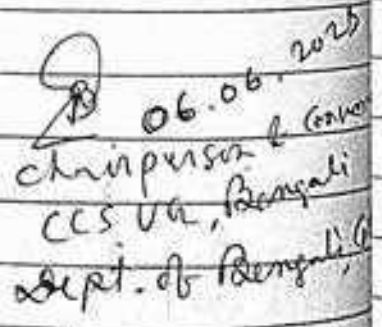 06.06.2025
Chairperson &
CCS UG, Bengali
Dept. of Bengali,